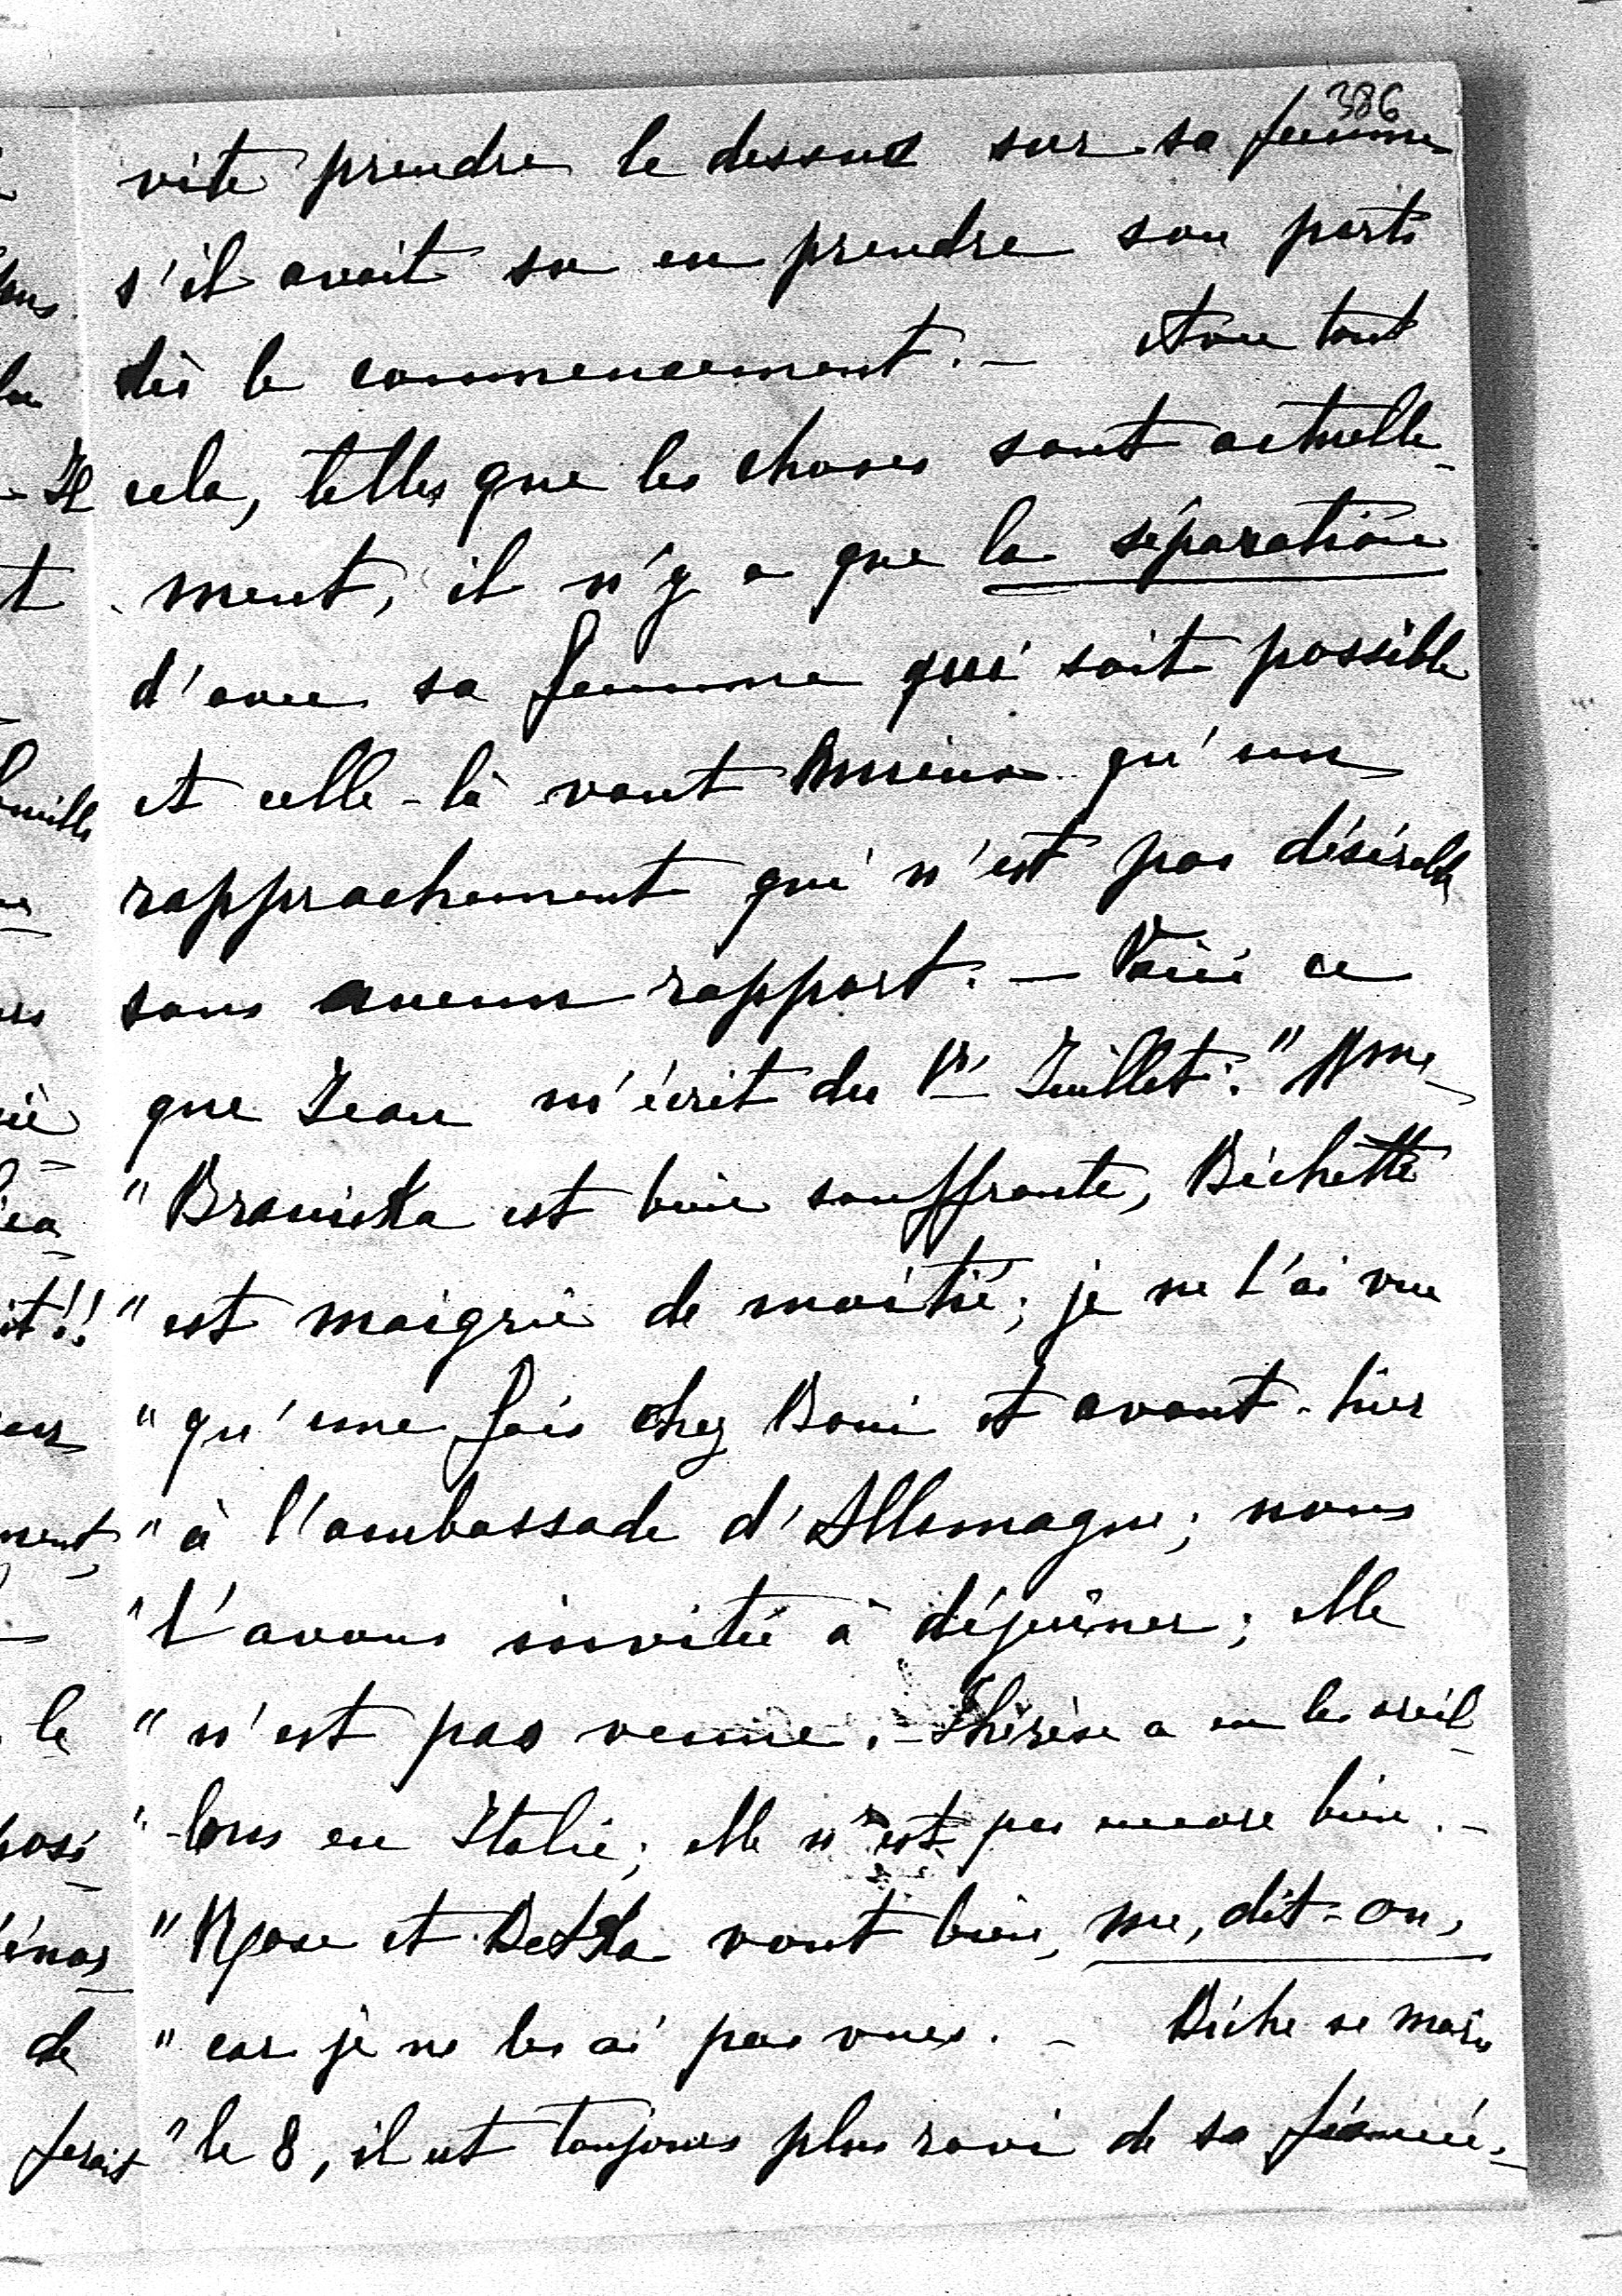 386
vite prendre le dessus sur sa femme
s'il avait su en prendre son parti
dès le commencement. — Avec tout
cela, telles que les choses sont actuelle-
ment, il n'y a que la séparation
d'avec sa femme qui soit possible
et celle-là vaut mieux qu'un
rapprochement qui n'est pas désirable
sous aucun rapport. — Voici ce
que Jean m'écrit du 1er Juillet: "Mme
"Braniska est bien souffrante, Bichette
"est maigrie de moitié; je ne l'ai vue
"qu'une fois chez Boni et avant-hier
"à l'ambassade d'Allemagne; nous
"l'avons invitée à déjeûner; elle
"n'est pas venue. — Thérèse a eu les oreil-
"-lons en Italie; elle n'est pas encore bien. —
"Rose et Betka vont bien, me, dit-on,
"car je ne les ai pas vues. — Biche se marie
"le 8, il est toujours plus ravi de sa fiancée. —